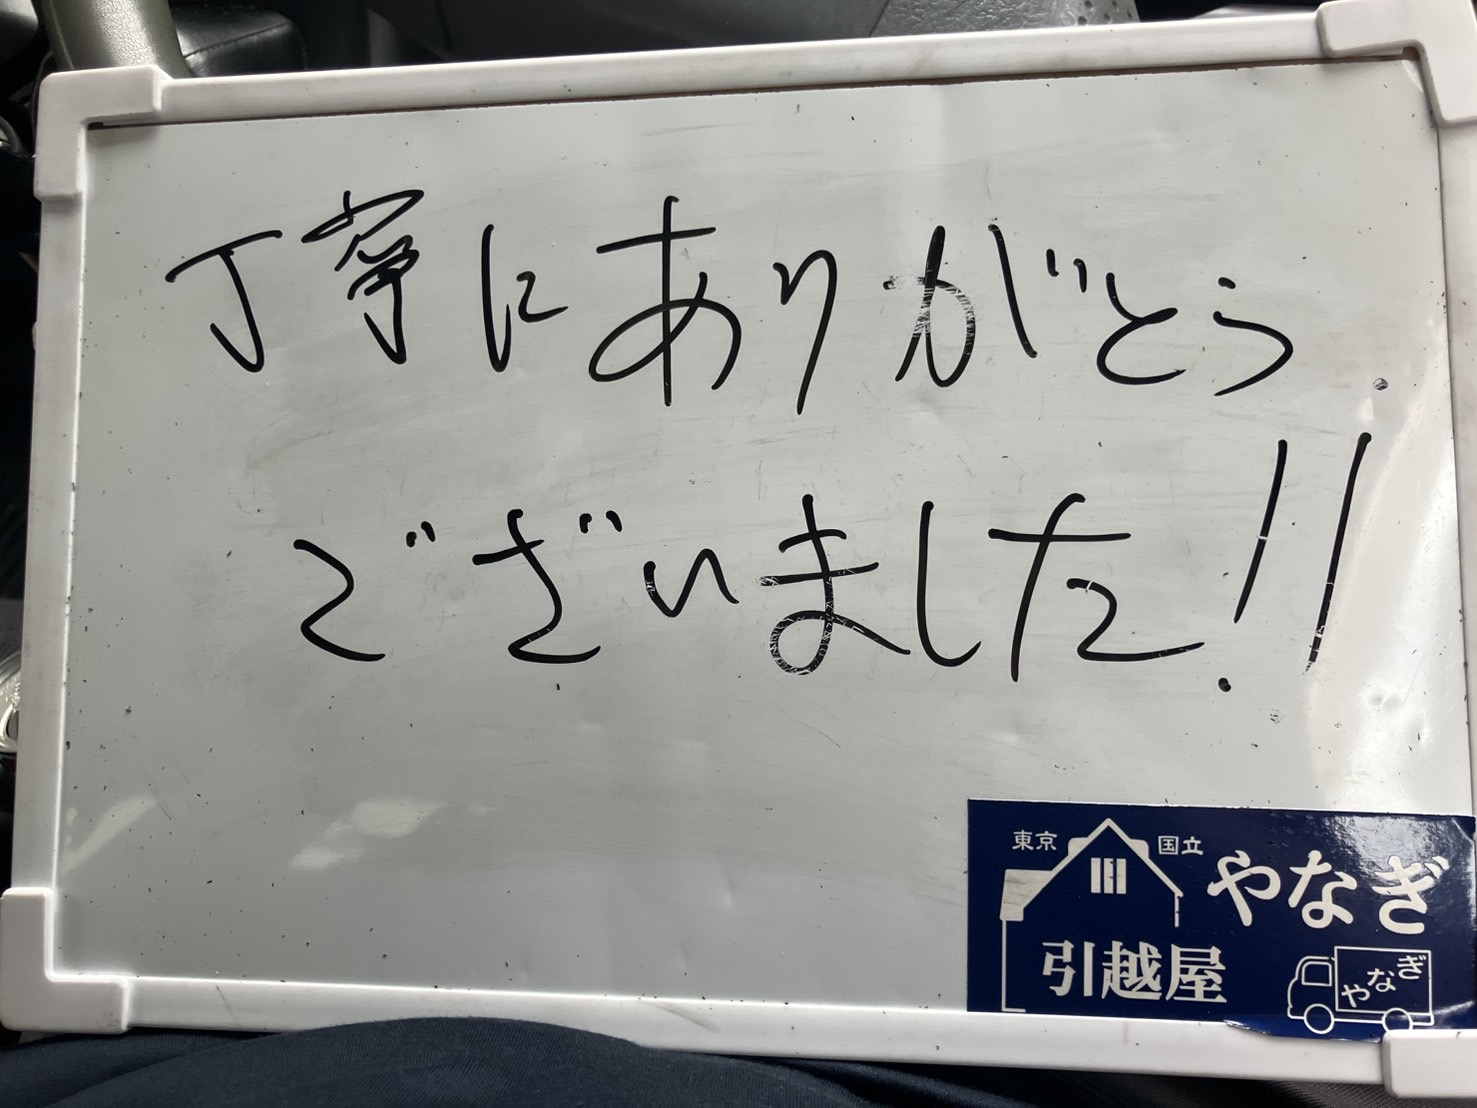 丁寧にありがとう
ございました!!
東京 国立
やなぎ
引越屋
やなぎ